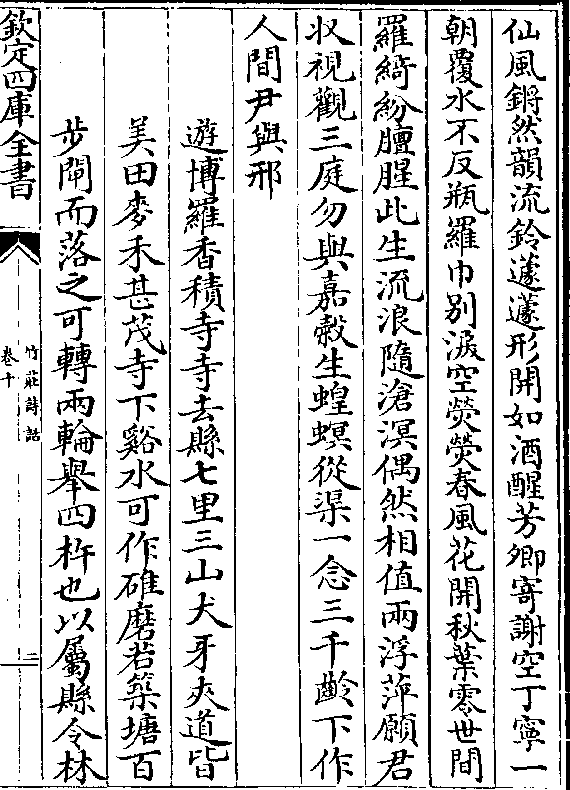 仙風鏘然韻流鈴蘧蘧形開如酒醒芳卿寄謝空丁寧一
朝覆水不反瓶羅巾别淚空熒熒春風花開秋葉零世間
羅綺紛膻腥此生流浪隨滄溟偶然相值兩浮萍願君
收視觀三庭勿與嘉穀生蝗螟從渠一念三千齡下作
人間尹與邢
遊博羅香積寺寺去縣七里三山犬牙夾道皆
美田麥禾甚茂寺下谿水可作碓磨若築塘百
步閘而落之可轉兩輪舉四杵也以屬縣令林
欽定四庫全書
竹莊詩話
卷十
二